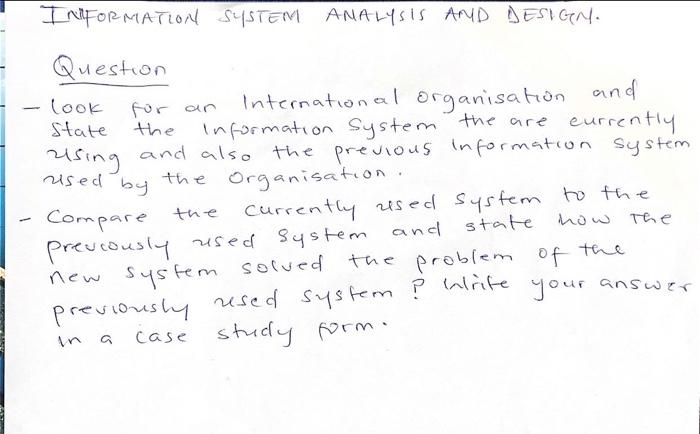 INFORMATION SYSTEM ANALYSIS AND DESIGN.
Question
- look for an International organisation and
State the Information System the are currently
using and also the previous Information System
used by the Organisation.
- Compare the currently used System to the
previously used System and state how The
new System solved the problem of the
previously used System? Write your answer
in a case study form.